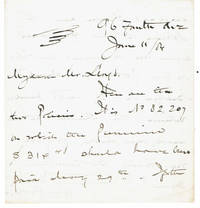 96 Fifth Ave
June 11/
My dear Mr. Lloyd.
Here are the
two Policies. It is No 82.207
on which the Premium
$ 31 should have been
paid May 29th.